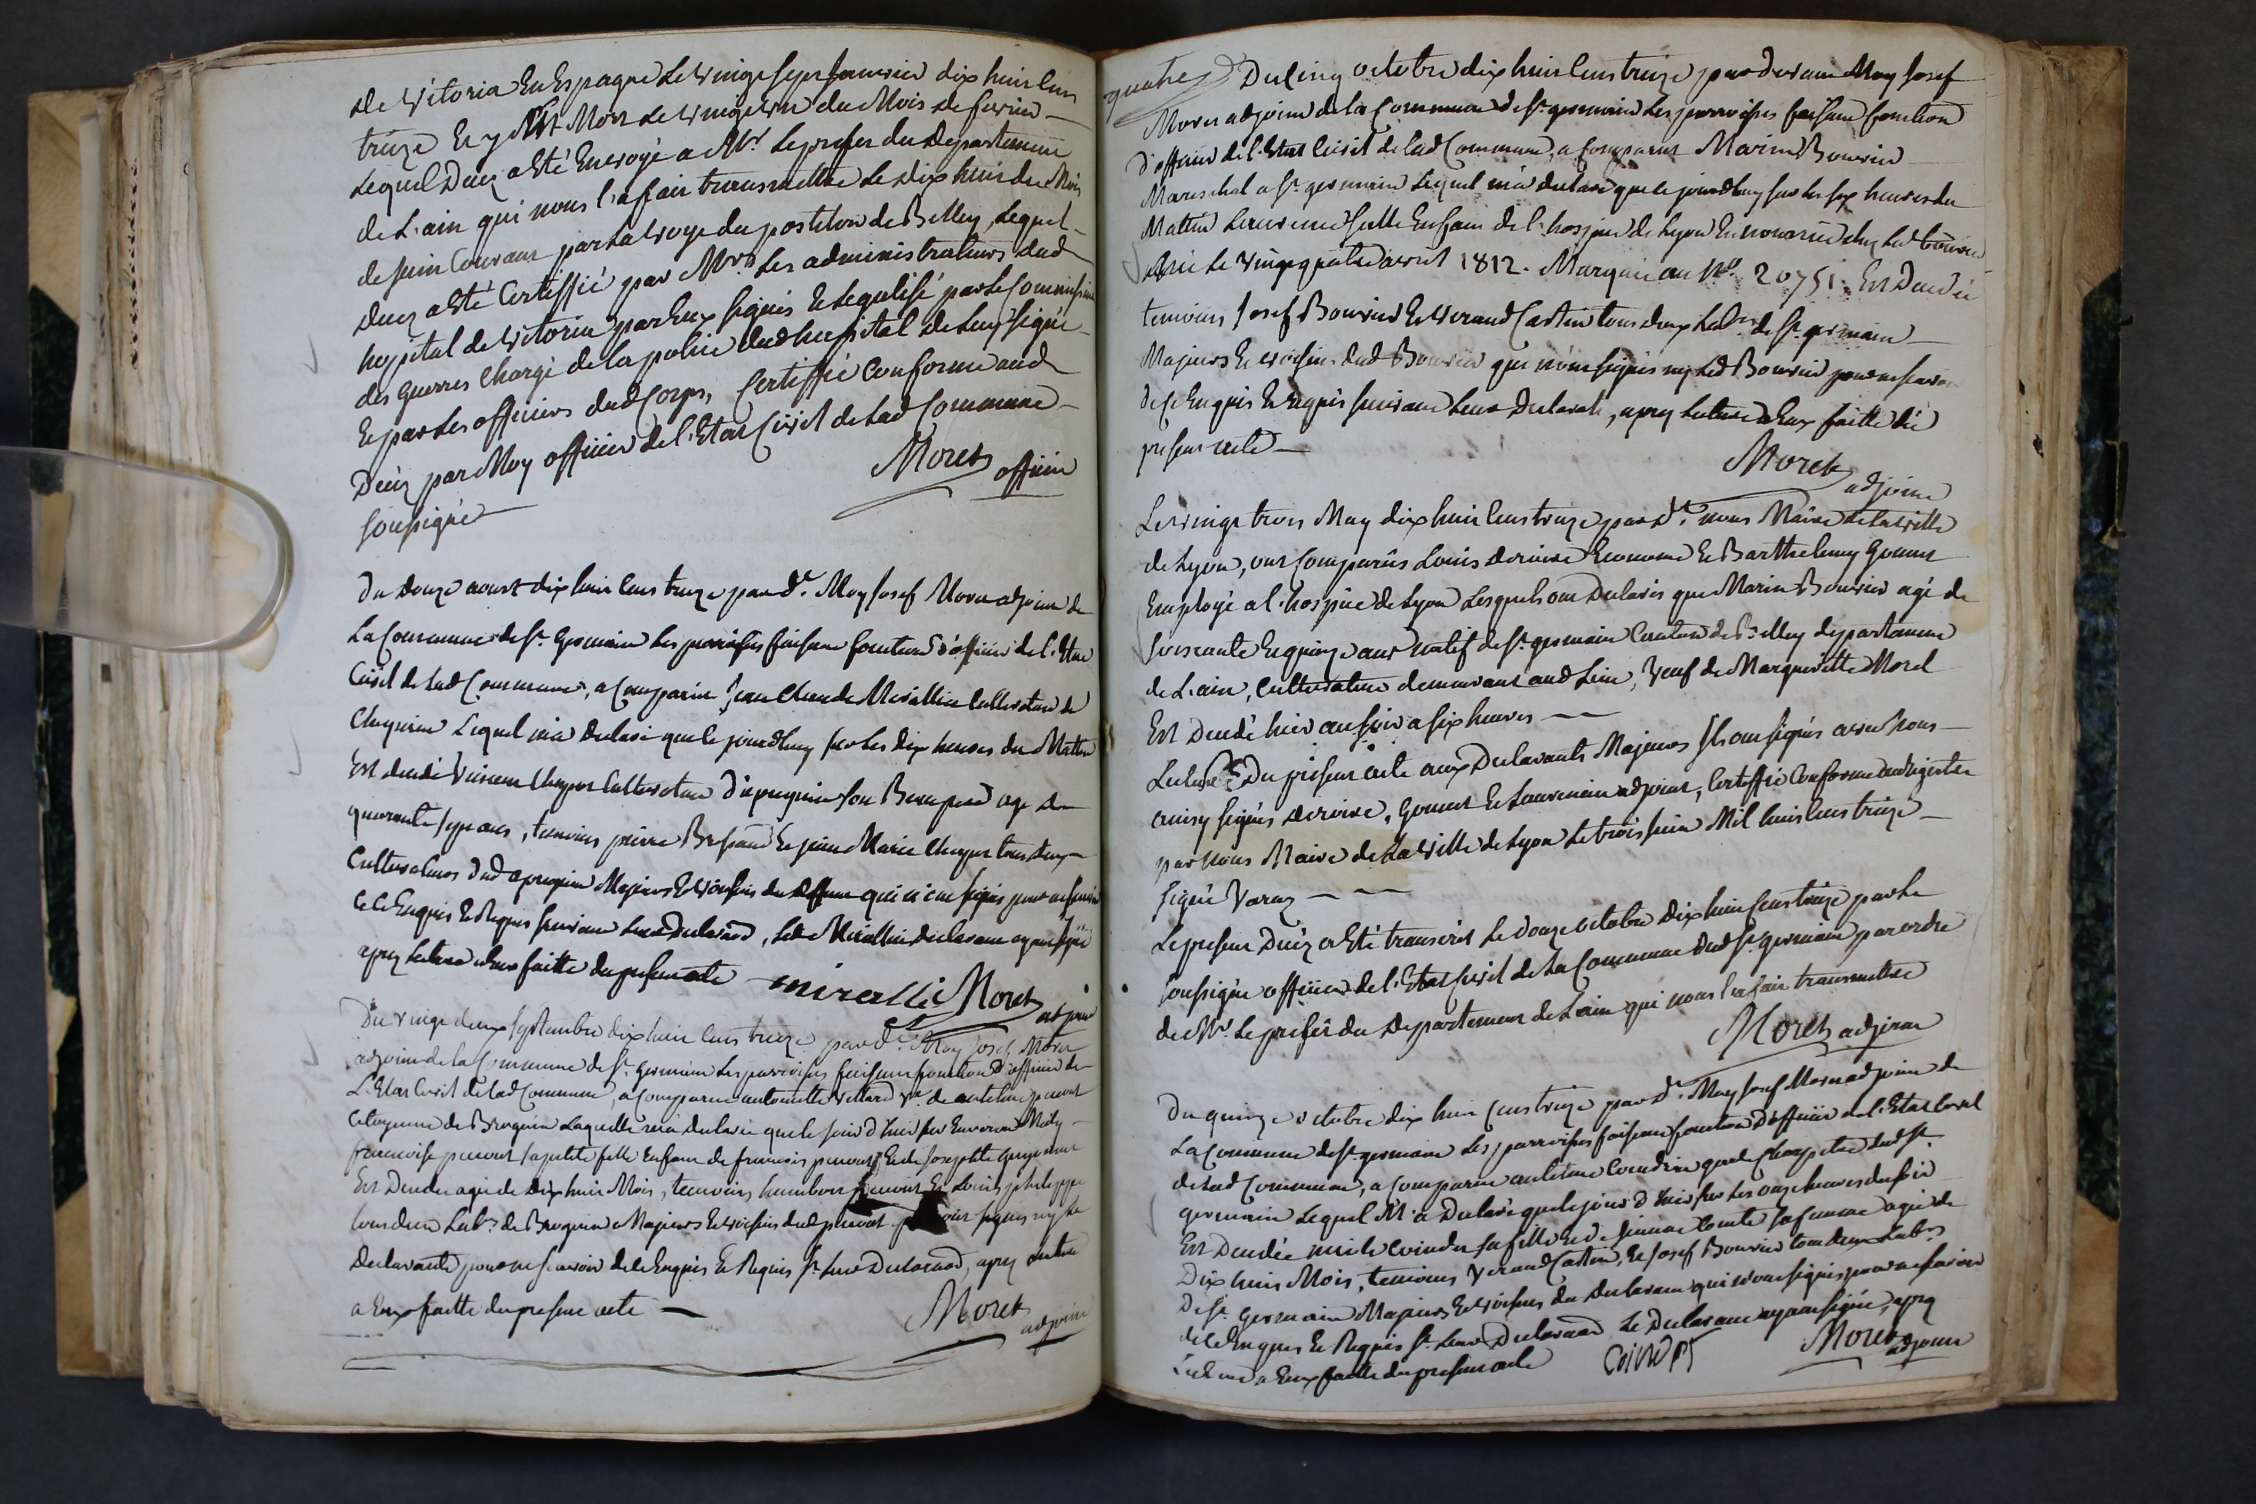 de vitoria En Espagne Le vingt sept janvier dix huit cens
treize Et y Est Mort Le vingt un du Mois de fevrier
Lequel Decez a Eté Envoyé a Mr. Le prefet du Departement
de L'ain qui nous l'a fait transmettre Le dix huit du Mois
de juin Courant par La voye du postillon de Belley, Lequel
deces a Eté Certiffié par Mrs. Les administrateurs dud
hopital de vitoria par Eux signés Et legalisé par Le Commissaire
des guerres Chargé de la police dud hopital de luy signé
Et par Les officiers dud Corps, Certiffié Conforme aud
Decéz par Moy officier de l'Etat Civil de Lad Commune
soussigné Moret officier
Du douze aoust dix huit cens treize pard.t Moy Josef Moret adjoint de
La Commune de St. Germain Les parroisses faisant fonction d'officier de l'Etat
Civil de Lad Commune, a Comparu Jean Claude Mirallie Cultivateur de
Lequel m'a declaré que le jourdhuy sur Les dix heures du Mattin
Est decedé Cultivateur son Beau pere age de
quarante sept ans, temoins pierre Et Marie tous deux
Cultivateurs dud Majeurs Et voisins du deffunt qui n'ont signés pour ne savoir
de Ce Enquis Et Requis suivant Leur Declarad, Led Mirallie declarant ayant signé
apres Lecture a Eux faitte du present acte miralli Moret adjoint
Du vingt deux septembre dix huit cens treize pard.t Moy Josef Moret
adjoint de la Commune de St. germain Les parroisses faisant fonction d'officier de
L'Etat Civil de Lad Commune, a Comparue antoinette ve. de
Citoyenne de Brognin Laquelle m'a declaré que le jour d'hier sur Environ Midy
francoise sa petite fille Enfant de francois Et de Josephte
Est Decedée agée de Dix huit Mois, temoins humbert Et Louis philippe
tous deux Labrs. de Brognin Majeurs Et voisins dud signés ny la
Declarante pour ne scavoir de Ce Enquis Et Requis St. Leur Declarad, apres lecture
a Eux faitte du present acte Moret adjoint
quatre Du Cinq octobre dix huit Cens treize pardevant Moy Josef
Moret adjoint de la Commune de St. germain Les parroisses faisant fonction
d'officier de l'Etat Civil de Lad Commune, a Comparut Marin Bouvier
Mareschal a St. germain Lequel m'a declaré que le jourdhuy sur les six heures du
Mattin fille Enfant de l'hospice de Lyon En nourrice chez Led bouvier
née Le vingt quatre avril 1812. Marquée au No. 20751. Est Decedée
temoins Josef Bouvier Et verand Castin tous deux Labrs. de St. germain
Majeurs Et voisins dud Bouvier qui n'ont signés ny Led Bouvier pour ne scavoir
de Ce Enquis Et Requis suivant Leur Declarade, apres Lecture a Eux faitte du
present acte Moret adjoint
Le vingt trois May dix huit Cens treize pard.t nous Maire de la ville
de Lyon, ont Comparûs Louis dervise Econome Et Barthelemy Gonnet
Employé a l'hospice de Lyon Lesquels ont Declarés que Marin Bouvier agé de
soixante Et quinze ans natif de St. germain Canton de Belley departement
de L'ain, Cultivateur demeurant aud Lieu, veuf de Marguerite Morel
Est Decedé hier au soir a six heures
Lecture Du present acte aux Declarants Majeurs Ils ont signés avec nous
ainsy signés dervise, Gonnet Et adjoint, Certiffié Conforme au Registre
par nous Maire de La ville de Lyon Le trois juin Mil huit Cens treize
signé Varaz
Le present Decez a Eté transcrit Le douze octobre Dix huit Cens treize par Le
soussigné officier de l'Etat Civil de La Commune dud St. germain par ordre
de Mr. Le prefét du Departement de L'ain qui nous l'a fait transmettre
Moret adjoint
Du quinze octobre dix huit Cens treize pard.t Moy Josef Moret adjoint de
La Commune de St. germain Les parroisses faisant fonction d'officier de l'Etat Civil
de Lad Commune, a Comparu antelme Coindre dud St.
germain Lequel M'a Declaré que le jour d'hier sur Les onze heures du soir
Est Decedée Coindre sa fille Et de sa femme agée de
Dix huit Mois, temoins Verand Castin, Et Josef Bouvier tous deux Labrs.
de St. germain Majeurs Et voisins du Declarant qui n'ont signés pour ne savoir
de Ce Enquis Et Requis St. Leur Declarad Le Declarant ayant signé, apres
Lecture a Eux faitte du present acte Moret adjoint